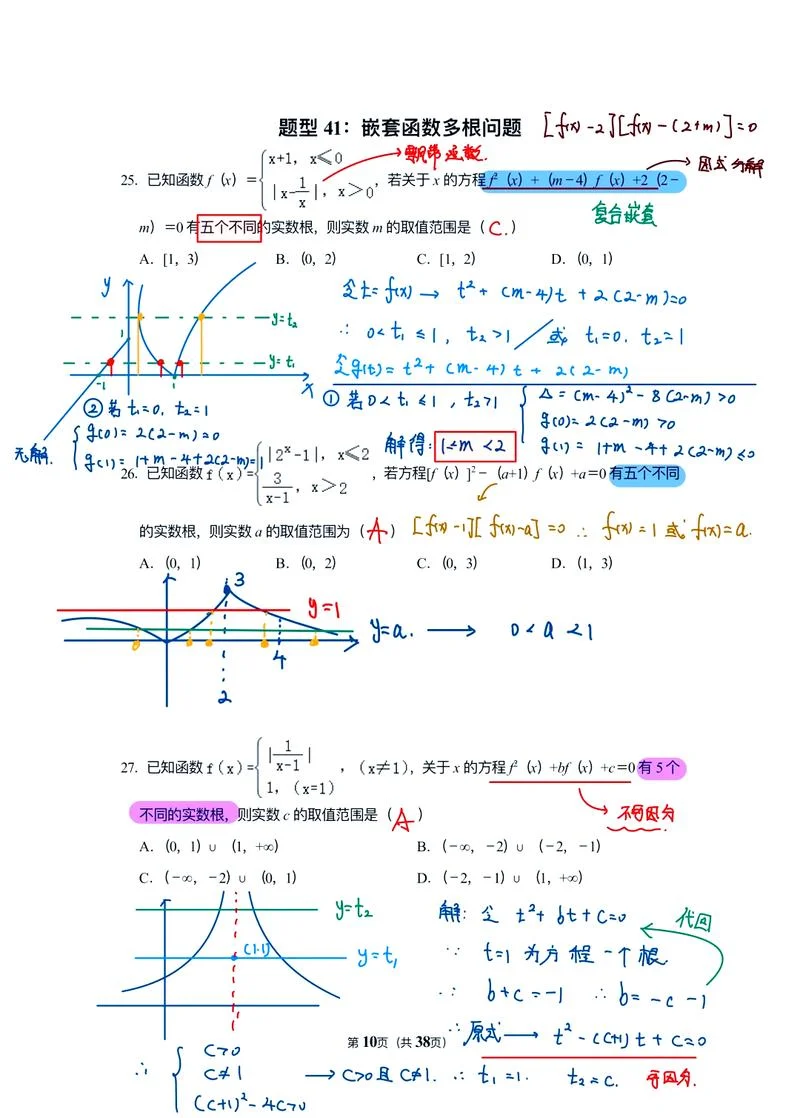 题型 41：嵌套函数多根问题 [f(x)-2][f(x)-(2+m)]=0
25. 已知函数 f（x）= { x+1, x⩽0
|x-1/x|, x>0 ，若关于 x 的方程 f²（x）+（m-4）f（x）+2（2-
因式分解
m）=0 有五个不同的实数根，则实数 m 的取值范围是（ C. ）
复合嵌套
A．[1，3） B．（0，2） C．[1，2） D．（0，1）
y
y=t₂
1
y=t₁
-1 1 x
令t=f(x) → t²+(m-4)t+2(2-m)=0
∴ 0<t₁≤1, t₂>1 / 或 t₁=0. t₂=1
令g(t)=t²+(m-4)t+2(2-m)
① 若0<t₁≤1, t₂>1 { Δ=(m-4)²-8(2-m)>0
g(0)=2(2-m)>0
g(1)=1+m-4+2(2-m)≤0
解得: 1≤m<2
② 若 t₁=0. t₂=1
无解. { g(0)=2(2-m)=0
g(1)=1+m-4+2(2-m)=1
26. 已知函数 f（x）= { |2ˣ-1|, x⩽2
3/(x-1), x>2 ，若方程[f（x）]²-（a+1）f（x）+a=0 有五个不同
的实数根，则实数 a 的取值范围为（ A ） [f(x)-1][f(x)-a]=0 ∴ f(x)=1 或 f(x)=a.
A．（0，1） B．（0，2） C．（0，3） D．（1，3）
3
y=1
y=a. → 0<a<1
4
2
27. 已知函数 f（x）= { |1/(x-1)| ，（x≠1）
1，（x=1） ，关于 x 的方程 f²（x）+bf（x）+c=0 有 5 个
不同的实数根，则实数 c 的取值范围是（ A ）
A．（0，1）∪（1，+∞） B．（-∞，-2）∪（-2，-1）
C．（-∞，-2）∪（0，1） D．（-2，-1）∪（1，+∞）
y=t₂
(1.1) y=t₁
解: 令 t²+bt+c=0
代回
∵ t=1 为方程一个根
∵ b+c=-1 ∴ b=-c-1
∴ 原式 → t²-(c+1)t+c=0
第 10页（共 38页）
∴ { c>0
c≠1
(c+1)²-4c>0
→ c>0且 c≠1. ∴ t₁=1. t₂=c.